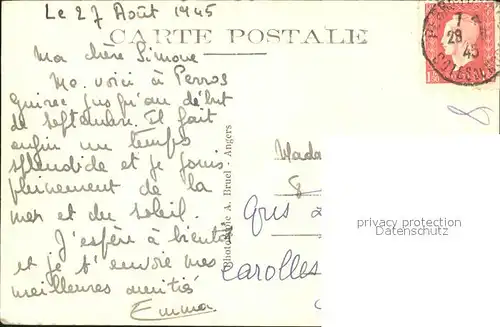 Le 27 Août 1945
CARTE POSTALE
Ma chère Simone
Me voici à Perros
Guirec jusqu'au début
de septembre. Il fait
enfin un temps
splendide et je jouis
pleinement de la
mer et du soleil.
J'espère à bientôt
et je t'envoie mes
meilleures amitiés
Emma
Phototypie A. Bruel - Angers
28
45
Mada
8
carolles
8
privacy protection
Datenschutz